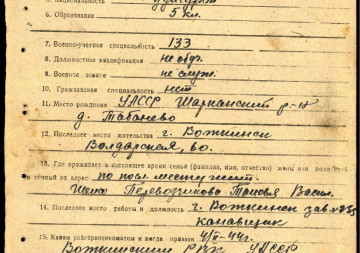 5. Национальность удмурт
6. Образование 5 кл.
7. Военно-учетная специальность 133
8. Должностная квалификация не обуч.
9. Воинское звание не служ.
10. Гражданская специальность нет
11. Место рождения УАССР Шарканский р-н
д. Табанево
12. Последнее место жительства г. Вожкинск
Володарская,
13. Где проживает в настоящее время семья (фамилия, имя, отчество) жены или родителей
и точный их адрес по пос. месту жит.
Жена Перевозчикова Васил.
14. Последнее место работы и должность г. Вожкинск зав. №
канавщик
15. Каким райгорвоенкоматом и когда призван 4/II-44г.
РВК УАССР